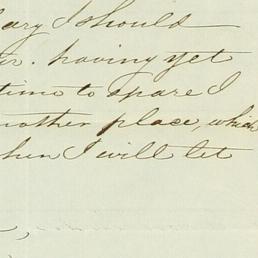 I should
. having yet
time to spare I
another place, which
when I will let